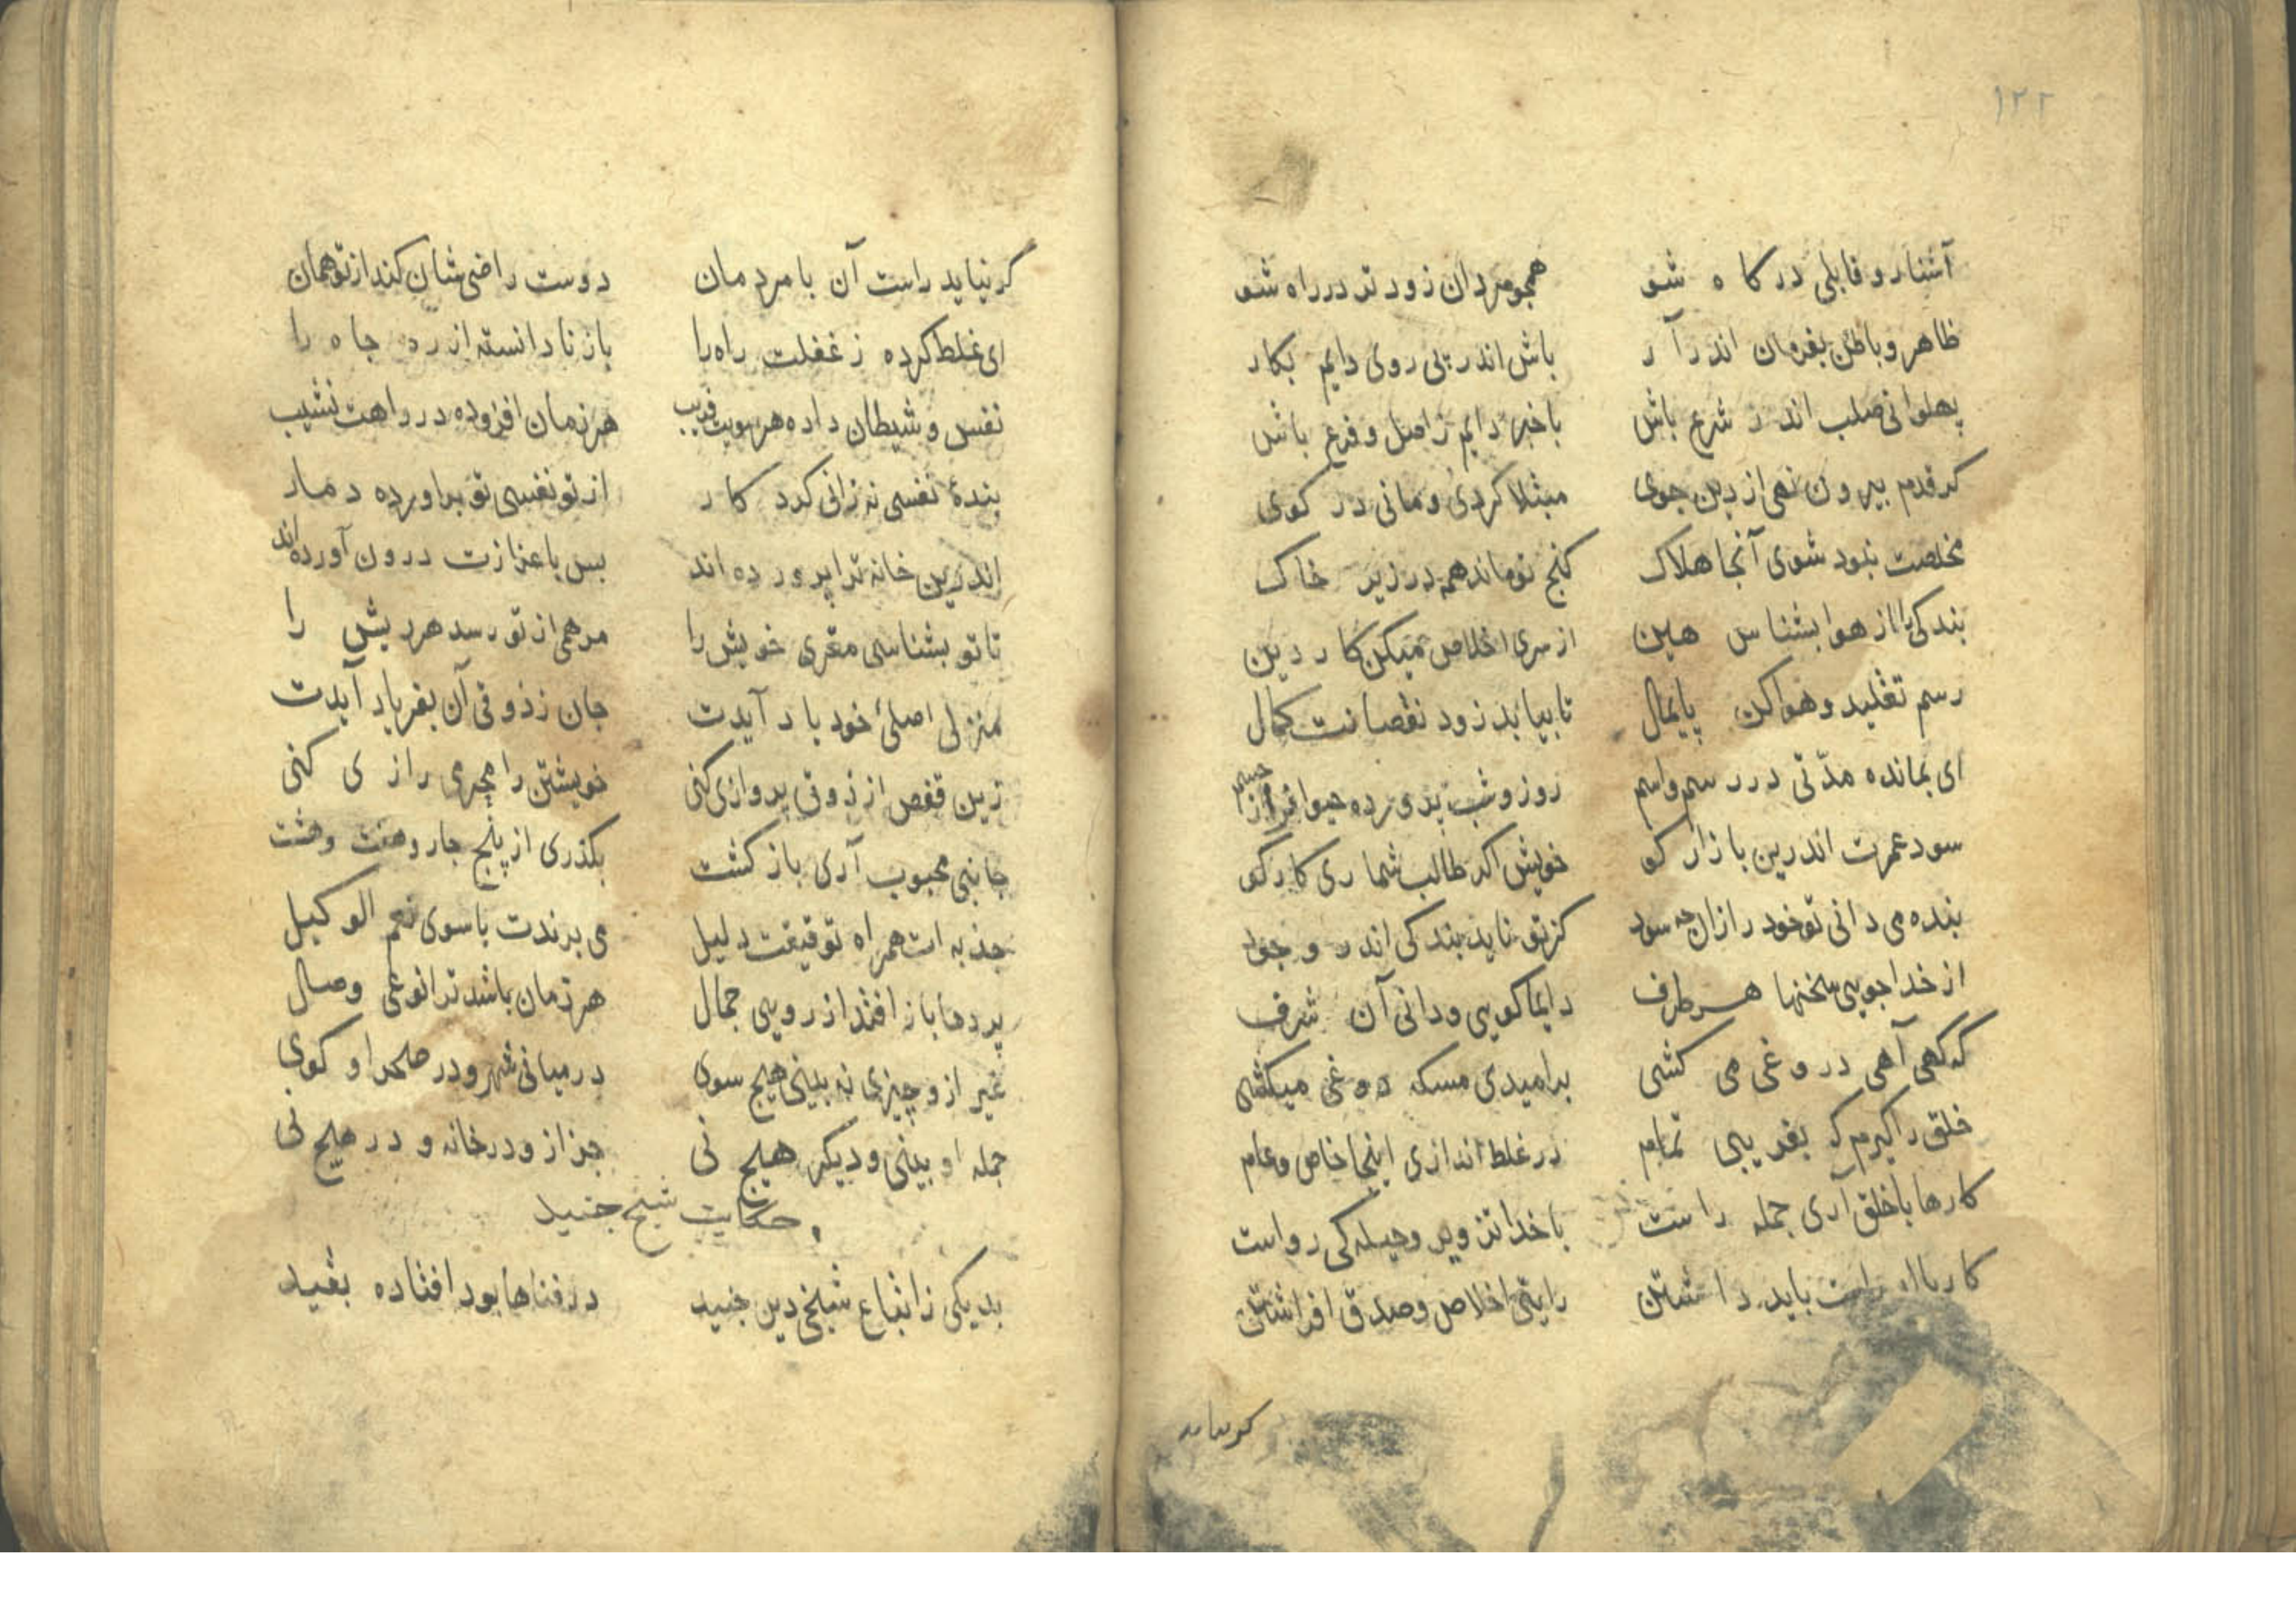 ۱۲۲
آشنا رو قابلی درکاه شو همچو مردان زودتر در راه شو
ظاهر و باطن بفرمان اندر آر باش اندر بی روی دایم بکار
پهلوانی صلب اندر شرع باش باخبر دایم ز اصل و فرع باش
کر قدم بیرون نهی از دین جوی مبتلا کردی و مانی در کوی
مخلصت نبود شوی آنجا هلاک کنج تو ماند همه در زیر خاک
بندکی را از هوا بشناس هین از سری اخلاص میکن کار دین
رسم تقلید و هوا کن پایمال تا بیابد زود نقصانت کمال
ای بمانده مدّتی در رسم و اسم روز و شب پرورده حیوانی از جسم
سود عمرت اندرین بازار کو خویش اکر طالب شماری کار کو
بنده می دانی تو خود را زان چه سود کز تو ناید بندکی اندر وجود
از خدا جویی سخنها هر طرف دایما کویی و دانی آن شرف
که کهی آهی دروغی می کشی بر امیدی مسکه دوغی میکشی
خلق را کیرم که بفریبی تمام در غلط اندازی اینجا خاص و عام
کارها با خلق آری جمله راست با خدا تزویر و حیله کی رواست
کار باید داشتن رایتی اخلاص و صدق افراشتن
کر نیاید
کر نیاید راست آن با مردمان دوست راضی شان کند از تو همان
ای غلط کرده ز غفلت راه را باز نادانسته از ره جاه را
نفس و شیطان داده هر سویت فریب هر زمان افزوده در راهت نشیب
بندهٔ نفسی نه زانی کرد کار از تو نفسی تو براورده دمار
اندرین خانه ترا پرورده اند بس باعزازت درون آورده اند
تا تو بشناسی مقری خویش را مرهمی از تو رسد هر ریش را
منزلی اصلیٔ خود یاد آیدت جان ز ذوقی آن بفریاد آیدت
زین قفص از ذوقی پروازی کنی خویشتن را محرمی رازی کنی
جانبی محبوب آری باز کشت بکذری از پنج چار و هفت و هشت
جذبه ات همراه توفیقت دلیل می برندت با سوی نعم الوکیل
پردها باز افتد از رویی جمال هر زمان باشد ترا نوعی وصال
غیر از و چیزی نه بینی هیچ سوی در میانی شهر و در صحرا و کوی
جمله او بینی و دیکر هیچ نی جز از و در خانه و در هیچ نی
حکایت شیخ جنید
بد یکی ز اتباع شیخی دین جنید در فناها بود افتاده بقید